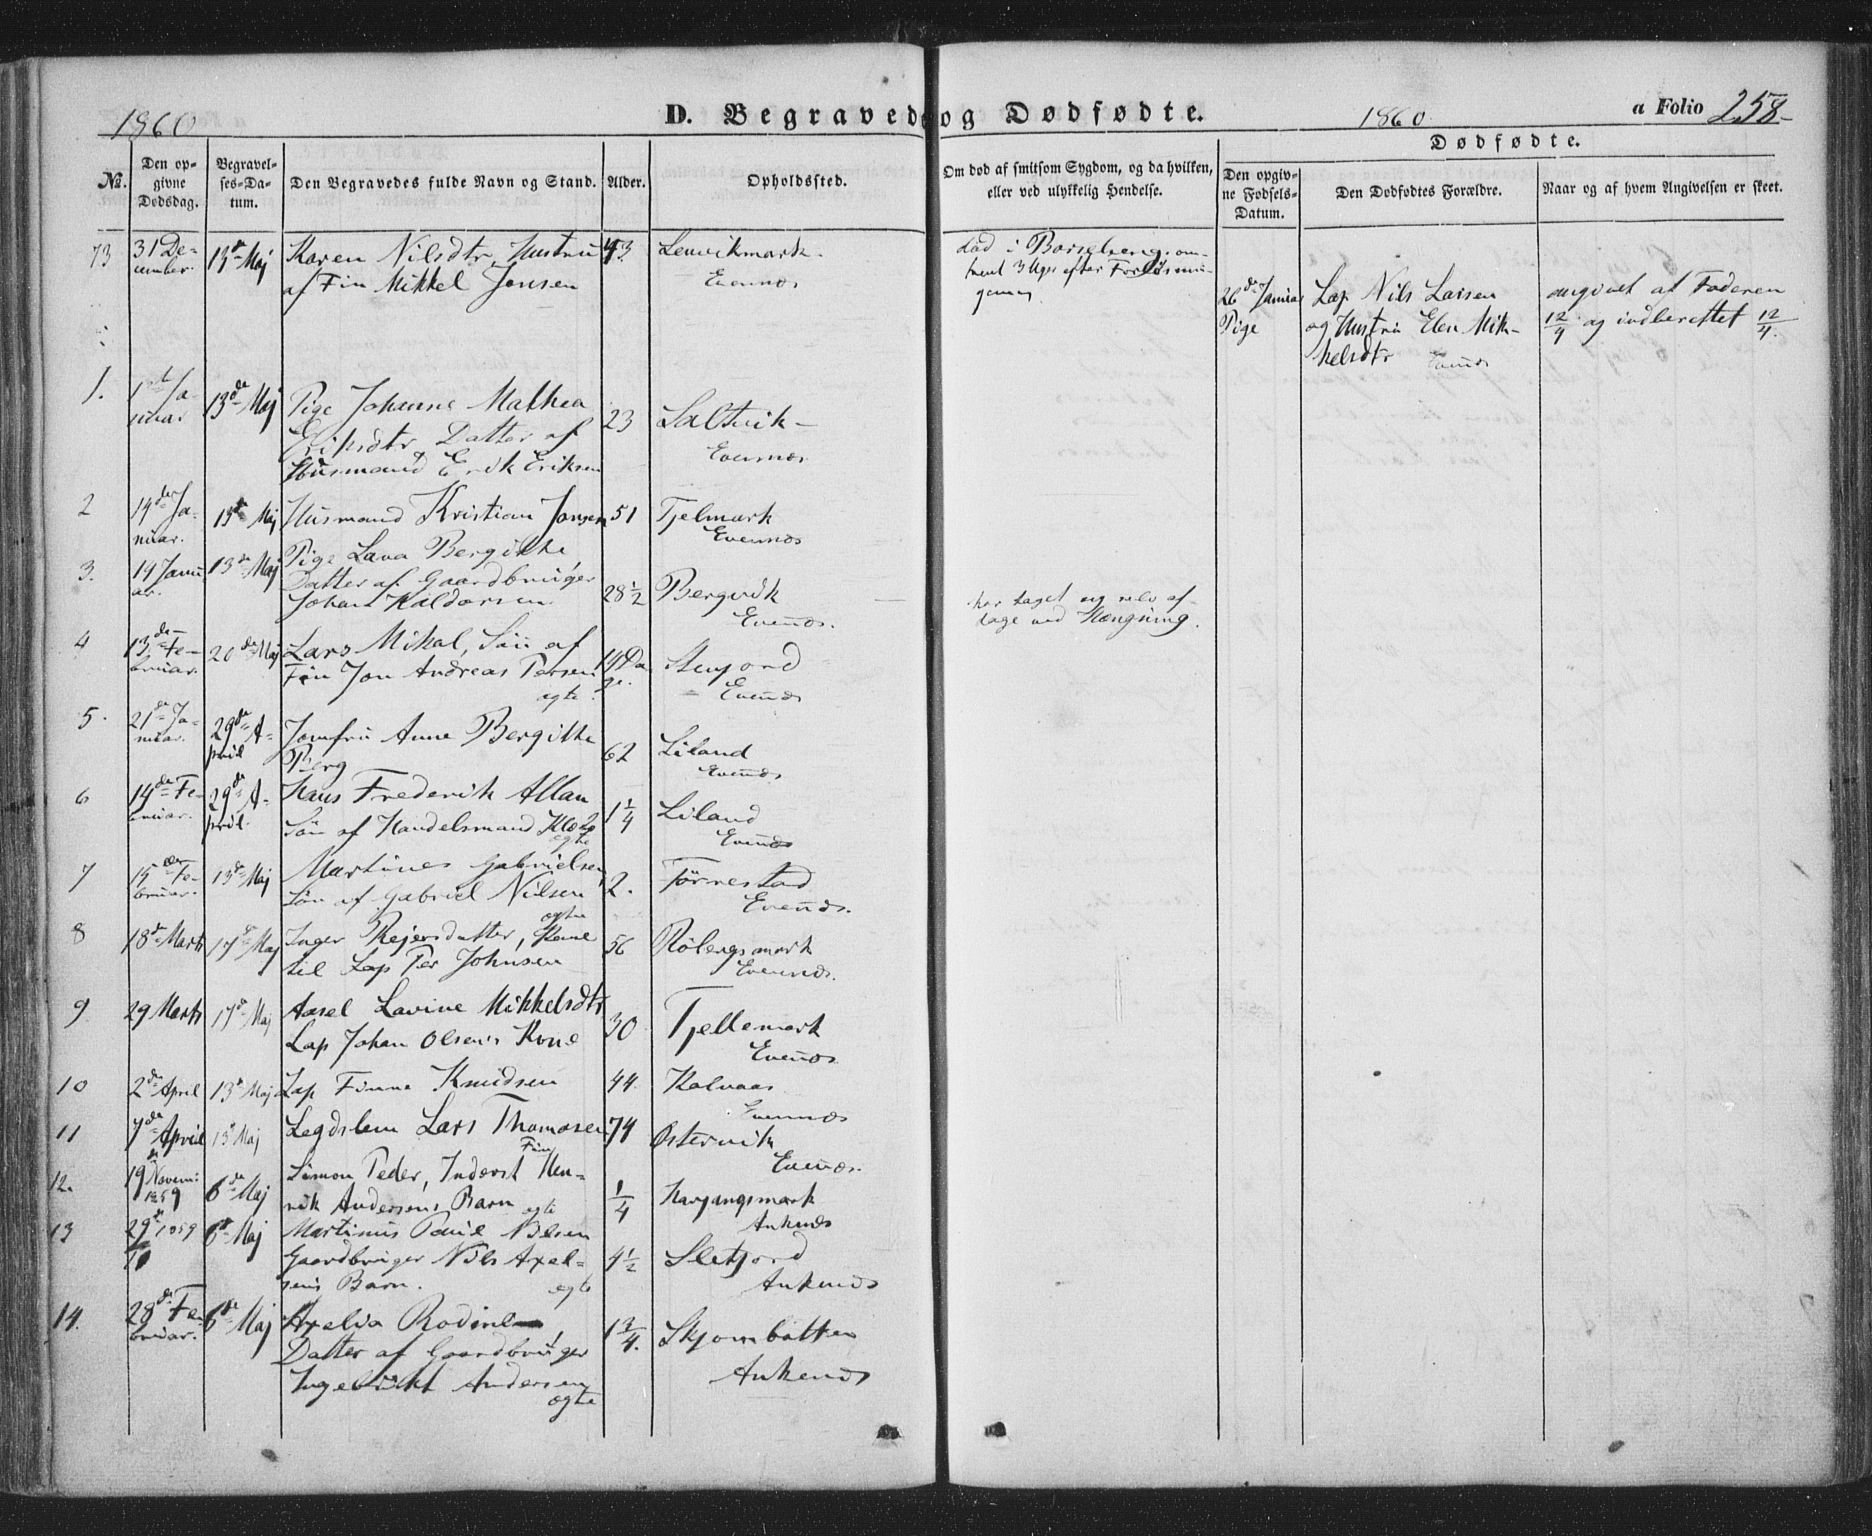 1860
D. Begravede og Dødfødte.
1860
a Folio 258
No.
Den opgivne Dødsdag.
Begravelses-Datum.
Den Begravedes fulde Navn og Stand.
Alder.
Opholdssted.
Om død af smitsom Sygdom, og da hvilken, eller ved ulykkelig Hendelse.
Dødfødte.
Den opgivne Fødsels-Datum.
Den Dødfødtes Forældre.
Naar og af hvem Angivelsen er skeet.
73 31 De- 13de Maj Karen Nilsdtr, Hustru 43 Lenvikmark død i Barselseng om-
cember. af Fin Mikkel Jonsen Evenæs trent 3 Uger efter Forløsnin-
gen
26de Januar Lap Nils Larsen angivet af Faderen
Pige og Hustru Elen Mik- 12/4 og indberettet 12/4.
kelsdtr Evenæs
1. 1ste Ja- 13de Maj Pige Johanne Mathea 23 Saltvik
nuar Eriksdtr, Datter af Evenæs
Husmand Erik Eriksen
2 14de Ja- 13de Maj Husmand Kristian Jonsen 51 Tjelmark
nuar. Evenæs
3. 19 Janu- 13de Maj Pige Lava Bergitte
ar. Datter af Gaardbruger 28 1/2 Bergvik har taget sig selv af
Johan Haldorsen Evenæs. dage ved Hængning.
4 13de Fe- 20de Maj Lars Mikal, Søn af 14 Da-
bruar. Fin Jon Andreas Persen ge.
ægte. Evenæs
5. 21de Ja- 29de A- Jomfru Anne Bergitte 62 Liland
nuar. pril Berg Evenæs
6 14de Fe- 29de A- Hans Frederik Allan 1 1/4 Liland
bruar. pril. Søn af Handelsmand
ægte Evenæs
7 15de Fe- 13de Maj Martines Gabrielsen 2. Tørrestad
bruar. Søn af Gabriel Nilsen Evenæs.
ægte
8 18de Marts 17de Maj Inger Rejersdatter, Kone 56
til Lap Per Johnsen Evenæs.
9 29 Marts 17de Maj Aasel Lavine Mikkelsdtr 30 Tjellemark
Lap Johan Olsens Kone Evenæs
10 2de April 13de Maj Lap Finne Knudsen 44 Kalvaas
Evenæs
11 7de April 13de Maj Legdslem Lars Thomasen 74 Østervik
Fin Evenæs.
12. 19de Novem: 6de Maj Simon Peder, Inderst Hen- 1/4 Harjangsmark
1859 rik Andersens Barn ægte Ankenæs
13 29de 1859 6de Maj Martinus Paul Nilsen
10 Gaardbruger Nils Axel- 4 1/2 Sletjord
sens Barn. ægte Ankenæs
14. 28de Fe- 6de Maj Axelva Rodine 1 3/4. Skjombotten
bruar. Datter af Gaardbruger Ankenæs
Ingebrikt Andersen
ægte